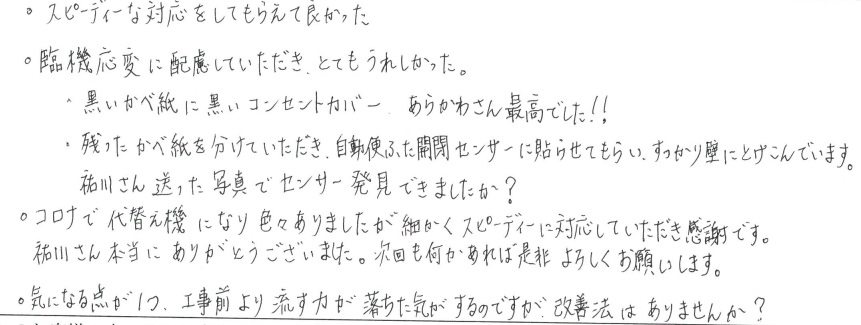 。スピーディーな対応をしてもらえて良かった
。臨機応変に配慮していただき、とてもうれしかった。
・黒いかべ紙に黒いコンセントカバー、あらかわさん最高でした!!
・残ったかべ紙を分けていただき、自動便ふた開閉センサーに貼らせてもらい、すっかり壁にとけこんでいます。
祐川さん送った写真でセンサー発見できましたか?
。コロナで代替え機になり色々ありましたが細かくスピーディーに対応していただき感謝です。
祐川さん本当にありがとうございました。次回も何かあれば是非よろしくお願いします。
。気になる点が1つ、工事前より流す力が落ちた気がするのですが、改善法はありませんか?